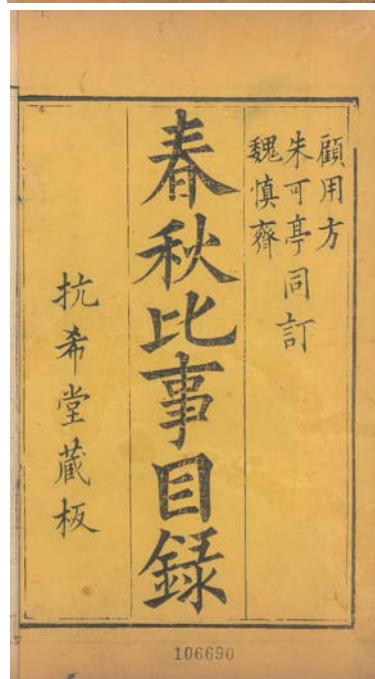 顧用方
朱可亭同訂
魏慎齋
春秋比事目錄
抗希堂藏板
106690